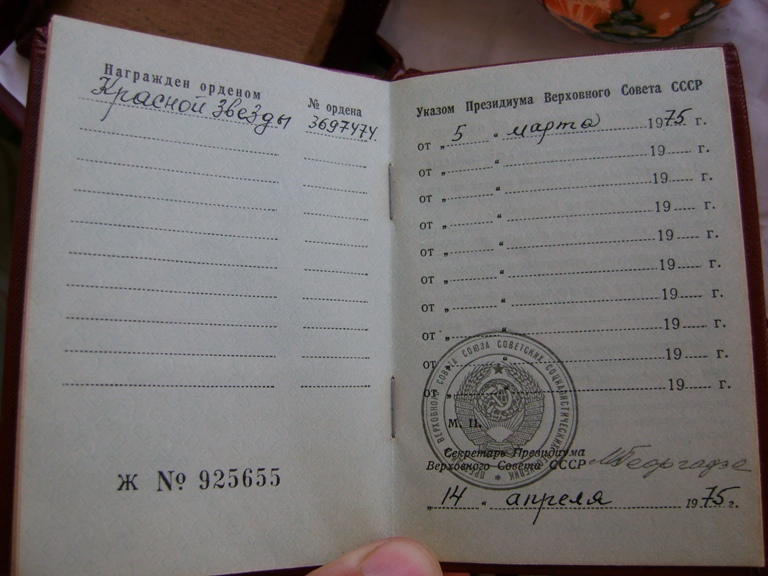 Награжден орденом
Красной Звезды
№ ордена
3697474
Ж № 925655
Указом Президиума Верховного Совета СССР
от „ 5 “ марта 1975 г.
от „ “ 19 г.
от „ “ 19 г.
от „ “ 19 г.
от „ “ 19 г.
от „ “ 19 г.
от „ “ 19 г.
от „ “ 19 г.
от „ “ 19 г.
от „ “ 19 г.
М. П.
Секретарь Президиума
Верховного Совета СССР МГеоргадзе
„ 14 “ апреля 1975 г.
ВЕРХОВНОГО СОВЕТА СОЮЗА СОВЕТСКИХ СОЦИАЛИСТИЧЕСКИХ